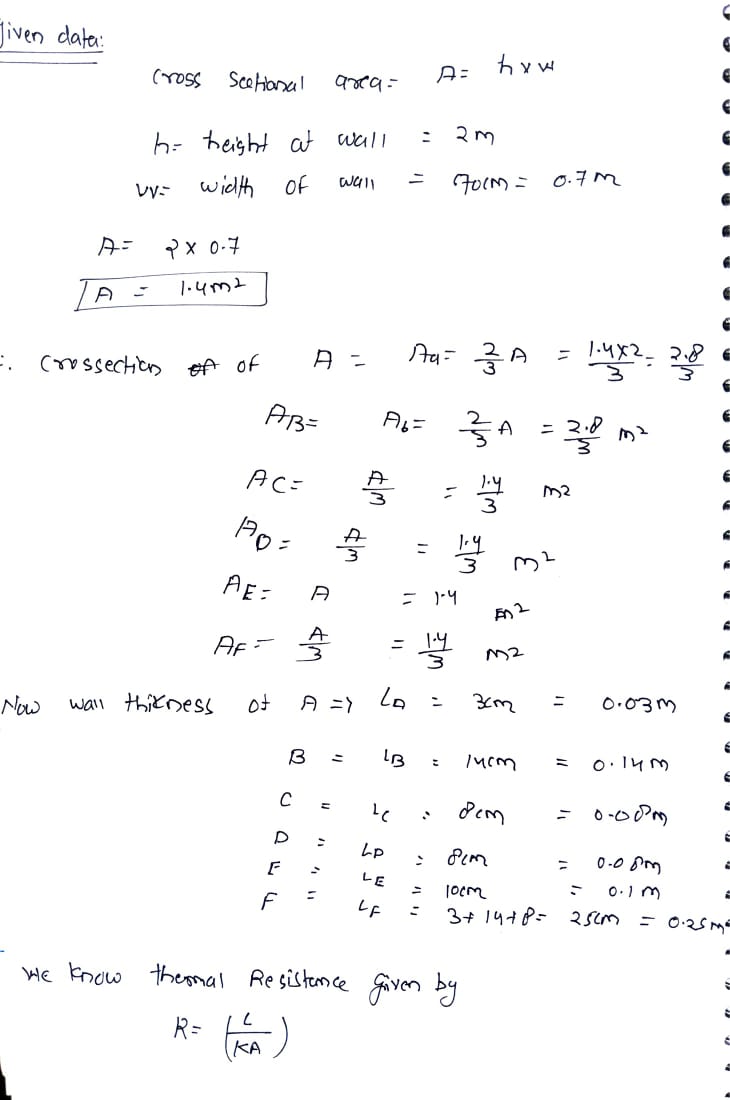 Given data:
Cross Sectional area = A = h x w
h = height at wall = 2m
w = width of wall = 70cm = 0.7m
A = 2 x 0.7
A = 1.4m2
∴ Crossection of of A = Aa = 2/3 A = 1.4x2/3 = 2.8/3
AB = Ab = 2/3 A = 2.8/3 m2
AC = A/3 = 1.4/3 m2
AD = A/3 = 1.4/3 m2
AE = A = 1.4 m2
AF = A/3 = 1.4/3 m2
Now wall thikness of A => LA = 3cm = 0.03m
B = LB = 14cm = 0.14m
C = LC = 8cm = 0.08m
D = LD = 8cm = 0.08m
E = LE = 10cm = 0.1m
F = LF = 3+14+8 = 25cm = 0.25m
We know thermal Resistance given by
R = (L/KA)